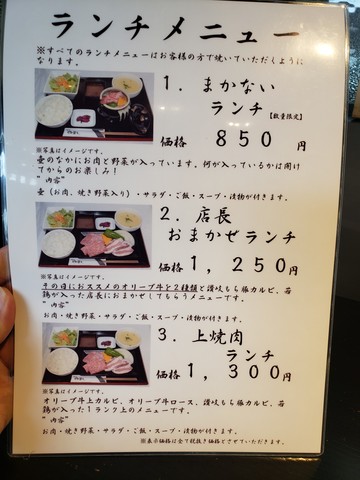 ランチメニュー
※すべてのランチメニューはお客様の方で焼いていただくように
なります。
1. まかない
ランチ
【数量限定】
価格 850円
※写真はイメージです。
壷のなかにお肉と野菜が入っています。何が入っているかは開け
てからのお楽しみ!
"内容"
壷（お肉、焼き野菜入り）・サラダ・ご飯・スープ・漬物が付きます。
2. 店長
おまかせランチ
価格 1,250円
※写真はイメージです。
その日におススメのオリーブ牛を2種類と讃岐もち豚カルビ、若
鶏が入った店長におまかせしてもらうメニューです。
"内容"
お肉・焼き野菜・サラダ・ご飯・スープ・漬物が付きます。
3. 上焼肉
ランチ
価格 1,300円
※写真はイメージです。
オリーブ牛上カルビ、オリーブ牛ロース、讃岐もち豚カルビ、若
鶏が入った1ランク上のメニューです。
"内容"
お肉・焼き野菜・サラダ・ご飯・スープ・漬物が付きます。
※表示価格は全て税抜き価格とさせていただきます。